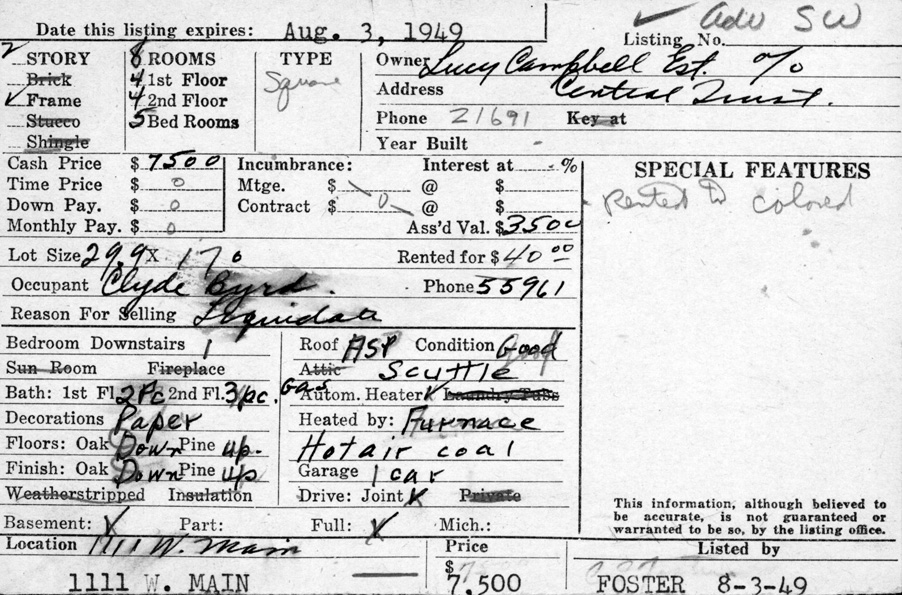 Date this listing expires: Aug. 3, 1949
✓ Adv SW
Listing No.
2 STORY 8 ROOMS TYPE
Brick 4 1st Floor Square
✓ Frame 4 2nd Floor
Stucco 5 Bed Rooms
Shingle
Owner Lucy Campbell Est. %
Address Central Trust.
Phone 21691 Key at
Year Built -
Cash Price $ 7500 Incumbrance: Interest at - %
Time Price $ 0 Mtge. $ @ $
Down Pay. $ 0 Contract $ 0 @ $
Monthly Pay. $ 0 Ass'd Val. $ 3500
SPECIAL FEATURES
Rented to colored
Lot Size 29.9 X 170 Rented for $ 40 00
Occupant Clyde Byrd. Phone 55961
Reason For Selling Liquidate
Bedroom Downstairs 1 Roof ASP Condition Good
Sun Room Fireplace Attic Scuttle
Bath: 1st Fl. 2 Pc 2nd Fl. 3 pc. Gas Autom. Heater ✓ Laundry Tubs
Decorations Paper Heated by: Furnace
Floors: Oak Down Pine up. Hot air coal
Finish: Oak Down Pine up Garage 1 car
Weatherstripped Insulation Drive: Joint X Private
Basement: X Part: Full: X Mich.:
This information, although believed to
be accurate, is not guaranteed or
warranted to be so, by the listing office.
Location 1111 W. Main Price Listed by
$ 7500
1111 W. MAIN 7,500 FOSTER 8-3-49